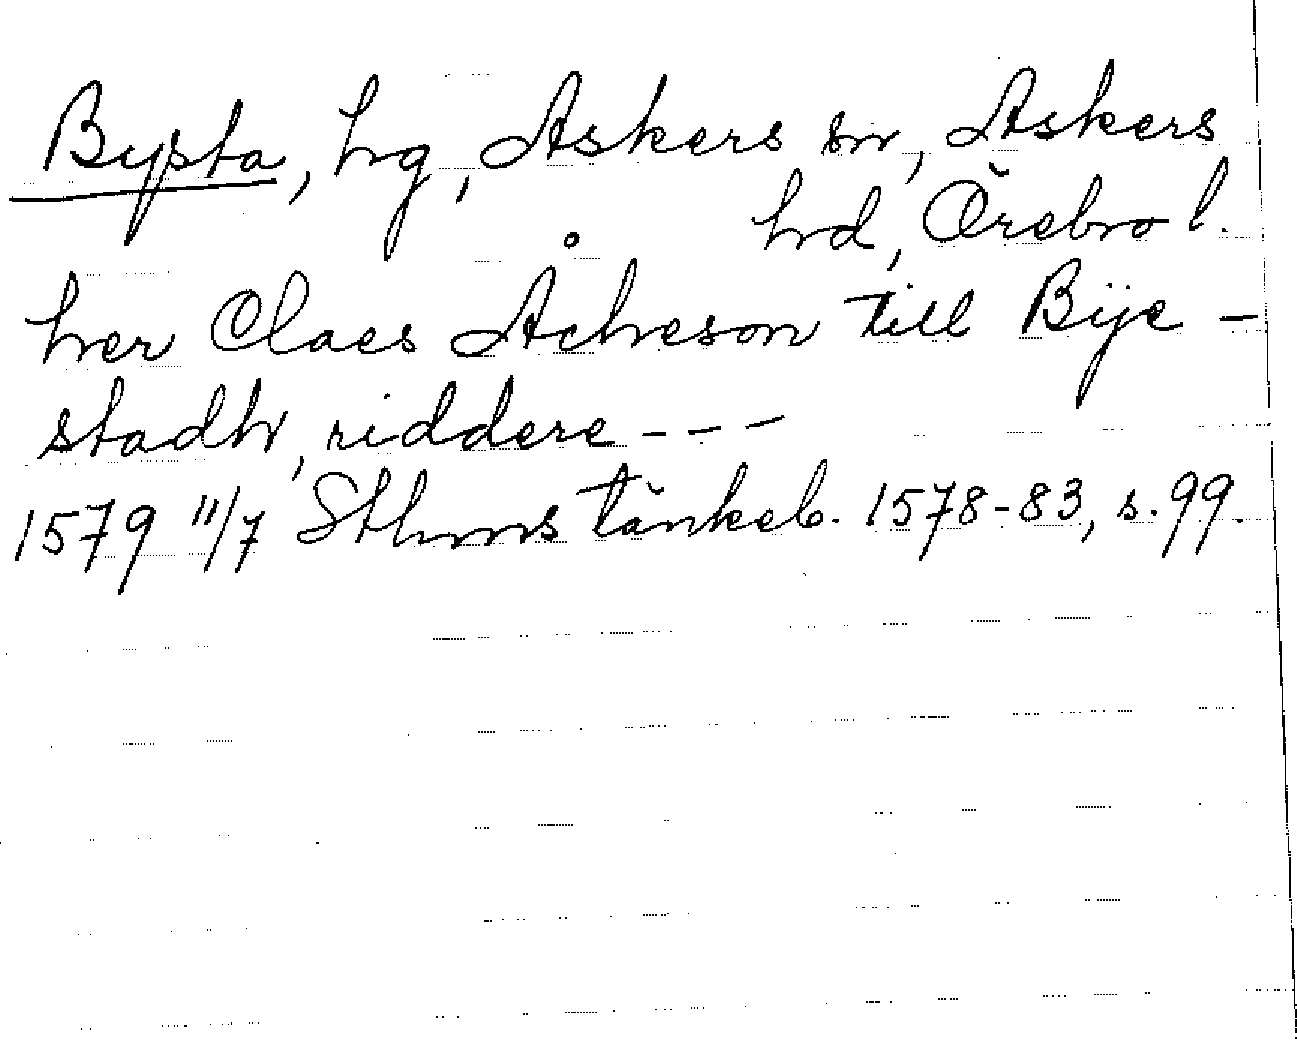 Bysta, hg, Askers sn, Askers
hd, Örebro l.
her Claes Åcheson till Bÿe-
stadh, riddere - - -
1579 11/7 Sthms tänkeb. 1578-83, s. 99.